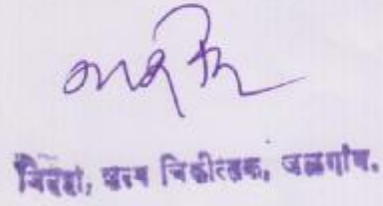 जिल्हा, शल्य चिकीत्सक, जळगांव.